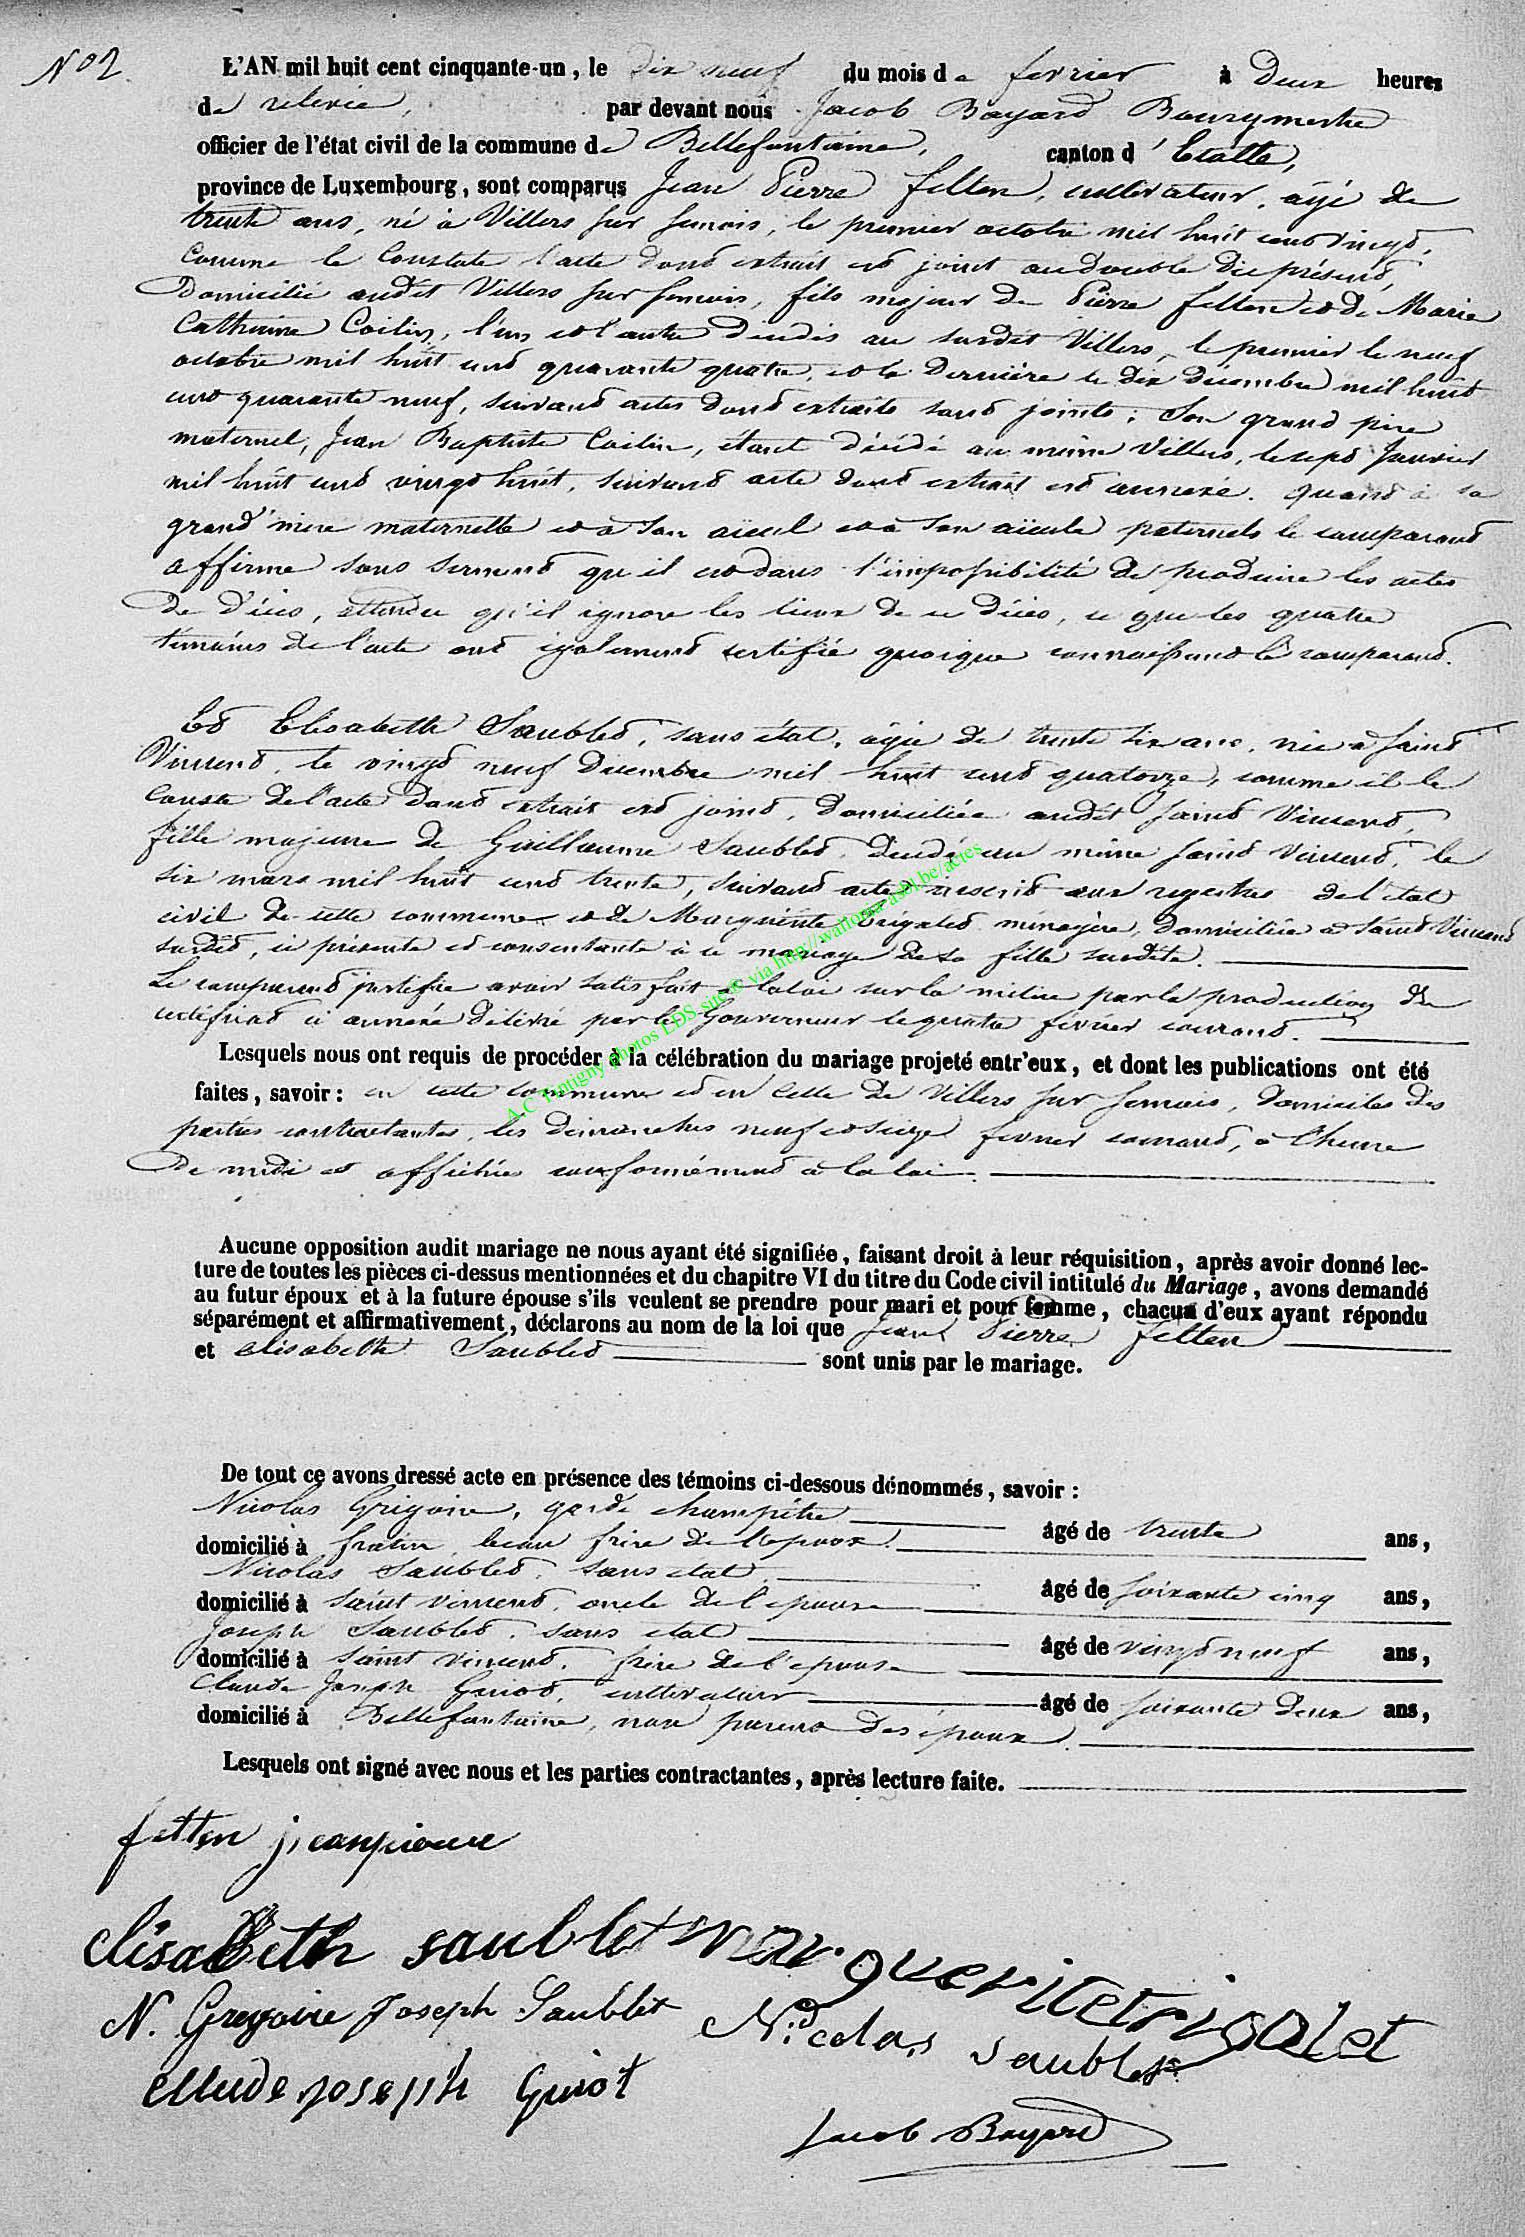 N° 2
L'AN mil huit cent cinquante-un, le dix neuf du mois de fevrier à Deux heures
de relevée, par devant nous Jacob Bayard Bourgmestre
officier de l'état civil de la commune de Bellefontaine, canton d'Etalle,
province de Luxembourg, sont comparus Jean Pierre Fetten, cultivateur, âgé de
trente ans, né à Villers sur Semois, le premier octobre mil huit cent vingt,
comme le constate l'acte dont extrait est joint au double du présent,
Domicilié audit Villers sur Semois, fils majeur de Pierre Fetten et de Marie
Catherine Collin, l'un et l'autre décédés au susdit Villers, le premier le neuf
octobre mil huit cent quarante quatre, et la dernière le dix décembre mil huit
cent quarante neuf, suivant actes dont extraits sont joints; Son grand père
maternel, Jean Baptiste Collin, étant décédé au même Villers, le sept Janvier
mil huit cent vingt huit, suivant acte dont extrait est annexé. Quant à sa
grand'mère maternelle et à son aïeul et à son aïeule paternels le comparant
affirme sous serment qu'il est dans l'impossibilité de produire les actes
de décès, attendu qu'il ignore les lieux de ce décès, ce que les quatre
témoins de l'acte ont également certifié quoique connaissant le comparant.
Et Elisabette Saublet, sans état, âgée de trente six ans, née à Saint
Vincent, le vingt neuf Décembre mil huit cent quatorze, comme il le
conste de l'acte dont extrait est joint, Domiciliée audit Saint Vincent,
fille majeure de Guillaume Saublet, décédé au même Saint Vincent, le
six mars mil huit cent trente, suivant acte inscrit aux registres de l'état
civil de cette commune et de Marguerite Trigalet ménagère, Domiciliée à Saint Vincent
susdit, ci présente et consentante à ce mariage de sa fille susdite.
Le comparant justifie avoir satisfait à la loi sur la milice par la production du
certificat ci annexé délivré par le Gouverneur le quatre février courant.
Lesquels nous ont requis de procéder à la célébration du mariage projeté entr'eux, et dont les publications ont été
faites, savoir: en cette commune et en celle de Villers sur Semois, domiciles des
parties contractantes, les Dimanches neuf et seize fevrier courant, à l'heure
de midi et affichées conformément à la loi.
Aucune opposition audit mariage ne nous ayant été signifiée, faisant droit à leur réquisition, après avoir donné lec-
ture de toutes les pièces ci-dessus mentionnées et du chapitre VI du titre du Code civil intitulé du Mariage, avons demandé
au futur époux et à la future épouse s'ils veulent se prendre pour mari et pour femme, chacun d'eux ayant répondu
séparément et affirmativement, déclarons au nom de la loi que Jean Pierre Fetten
et elisabette Saublet sont unis par le mariage.
De tout ce avons dressé acte en présence des témoins ci-dessous dénommés, savoir:
Nicolas Grégoire, garde champêtre âgé de trente ans,
domicilié à fratin, beau frère de l'epoux.
Nicolas Saublet, sans etat, âgé de soixante cinq ans,
domicilié à Saint Vincent, oncle de l'epouse
Joseph Saublet, sans etat âgé de vingt neuf ans,
domicilié à Saint Vincent, frère de l'epouse
Claude Joseph Guiot, cultivateur âgé de soixante deux ans,
domicilié à Bellefontaine, non parent des époux.
Lesquels ont signé avec nous et les parties contractantes, après lecture faite.
fetten jeanpierre
elisabeth saublet marguerite trigalet
N. Gregoire Joseph Saublet Nicolas saublet
Claude joseph Guiot
Jacob Bayard
A.C Tintigny photos LDS site © via http://wallonia-asbl.be/actes